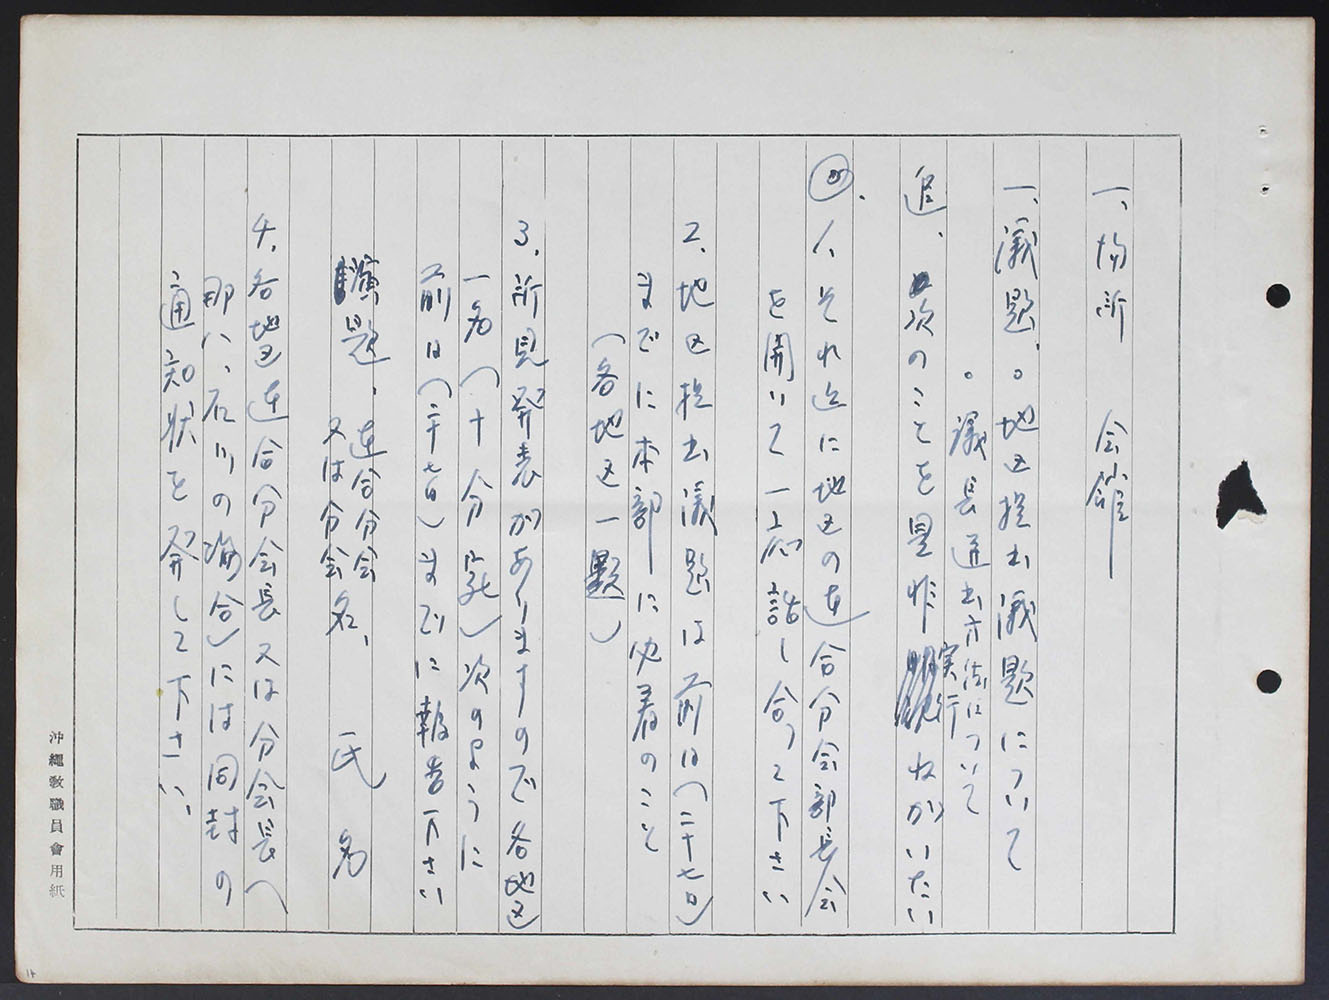 一、場所 会館
一、議題。○地区提出議題について
○議長選出方法について
追、次のことを是非実行ねがいたい
1、それ迄に地区の連合分会部長会
を開いて一応話し合って下さい
2、地区提出議題は前日(二十七日)
までに本部に必着のこと
(各地区一題)
3、所見発表がありますので各地区
一名(十分宛)次のように
前日(二十七日)までに報告下さい
演題、連合分会
又は分会名、氏名
4、各地区連合分会長又は分会長へ
那ハ、石川の場合)には同封の
通知状を発して下さい、
沖繩教職員會用紙